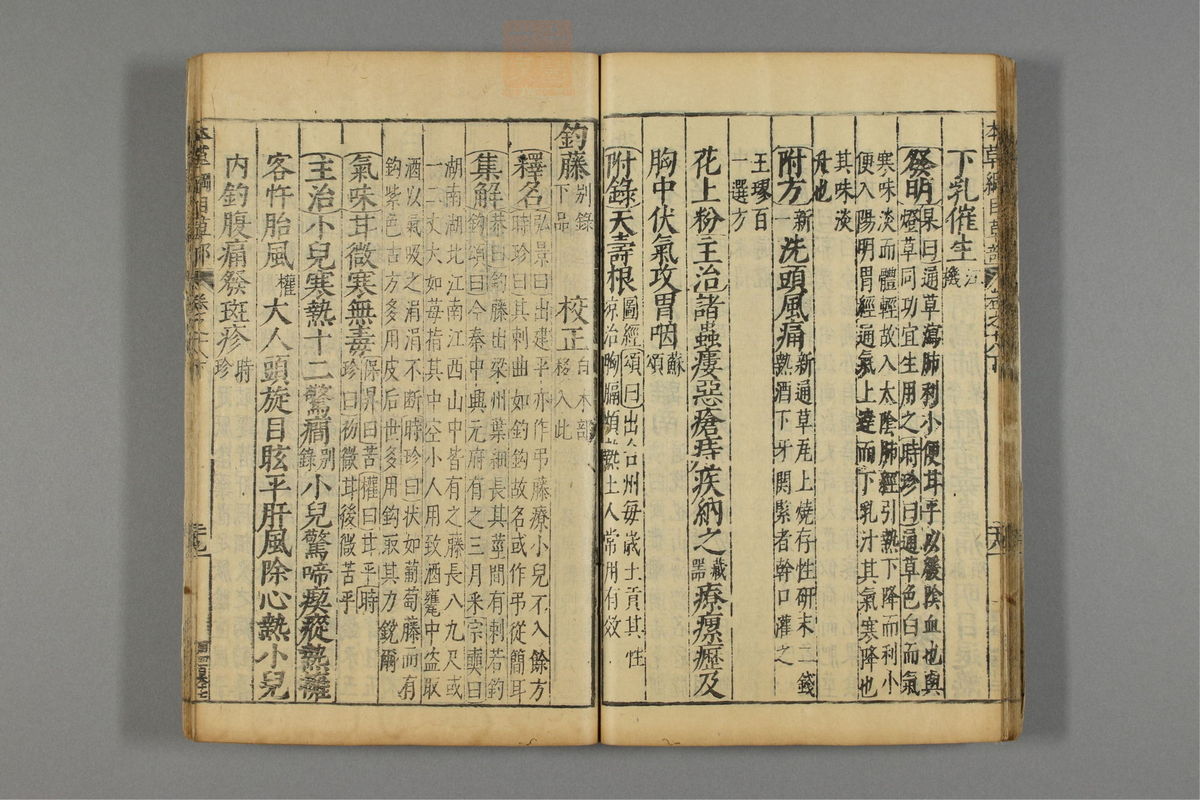 本草綱目草部 卷之十八下 二十八
下乳催生汪機
發明杲曰通草瀉肺利小便甘平以緩陰血也與
燈草同功宜生用之時珍曰通草色白而氣
寒味淡而體輕故入太陰肺經引熱下降而利小
便入陽明胃經通氣上達而下乳汁其氣寒降也
其味淡
升也
附方新一洗頭風痛新通草瓦上燒存性研末二錢
熱酒下牙關緊者斡口灌之
王璆百
一選方
花上粉主治諸蟲瘻惡瘡痔疾納之藏器療瘰癧及
胸中伏氣攻胃咽蘇頌
附錄天壽根圖經頌曰出台州每歲土貢其性
凉治胸膈煩熱土人常用有效
釣藤别錄下品 校正自木部移入此
釋名弘景曰出建平亦作吊藤療小兒不入餘方
時珍曰其刺曲如釣鈎故名或作吊從簡耳
集解恭曰釣藤出梁州葉細長其莖間有刺若釣
鈎頌曰今秦中興元府有之三月采宗奭曰
湖南湖北江南江西山中皆有之藤長八九尺或
一二丈大如毋指其中空小人用致酒甕中盜取
酒以氣吸之涓涓不斷時珍曰狀如葡萄藤而有
鈎紫色古方多用皮后世多用鈎取其力銳爾
氣味甘微寒無毒保昇曰苦權曰甘平時
珍曰初微甘後微苦平
主治小兒寒熱十二驚癇别錄小兒驚啼瘈瘲熱壅
客忤胎風權大人頭旋目眩平肝風除心熱小兒
内釣腹痛發斑疹時珍
本草綱目草部 卷之十八下 二十九